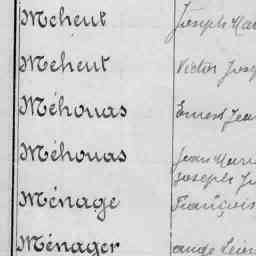 Meheut Joseph
Meheut Victor
Méhouas Ernest
Méhouas Jean Marie
Joseph
Ménage François
Ménager ange